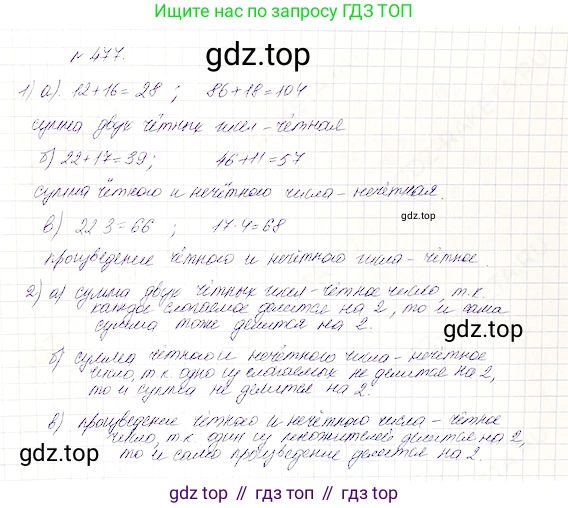 Ищите нас по запросу ГДЗ ТОП
gdz.top
№ 477.
1) а). 12+16=28 ; 86+18=104
сумма двух чётных чисел - чётная
б) 22+17=39; 46+11=57
gdz.top
сумма чётного и нечётного числа - нечётная.
в) 22·3=66 ; 17·4=68
произведение чётного и нечётного числа - чётное.
2) а) сумма двух чётных чисел - чётное число, т.к.
каждое слагаемое делится на 2, то и сама
сумма тоже делится на 2.
gdz.top
б) сумма чётного и нечётного числа - нечётное
число, т к одно из слагаемых не делится на 2,
то и сумма не делится на 2.
в) произведение четного и нечётного числа - чётное
число, т.к один из множителей делится на 2,
то и само произведение делится на 2.
gdz.top
gdz.top // гдз топ // гдз.топ